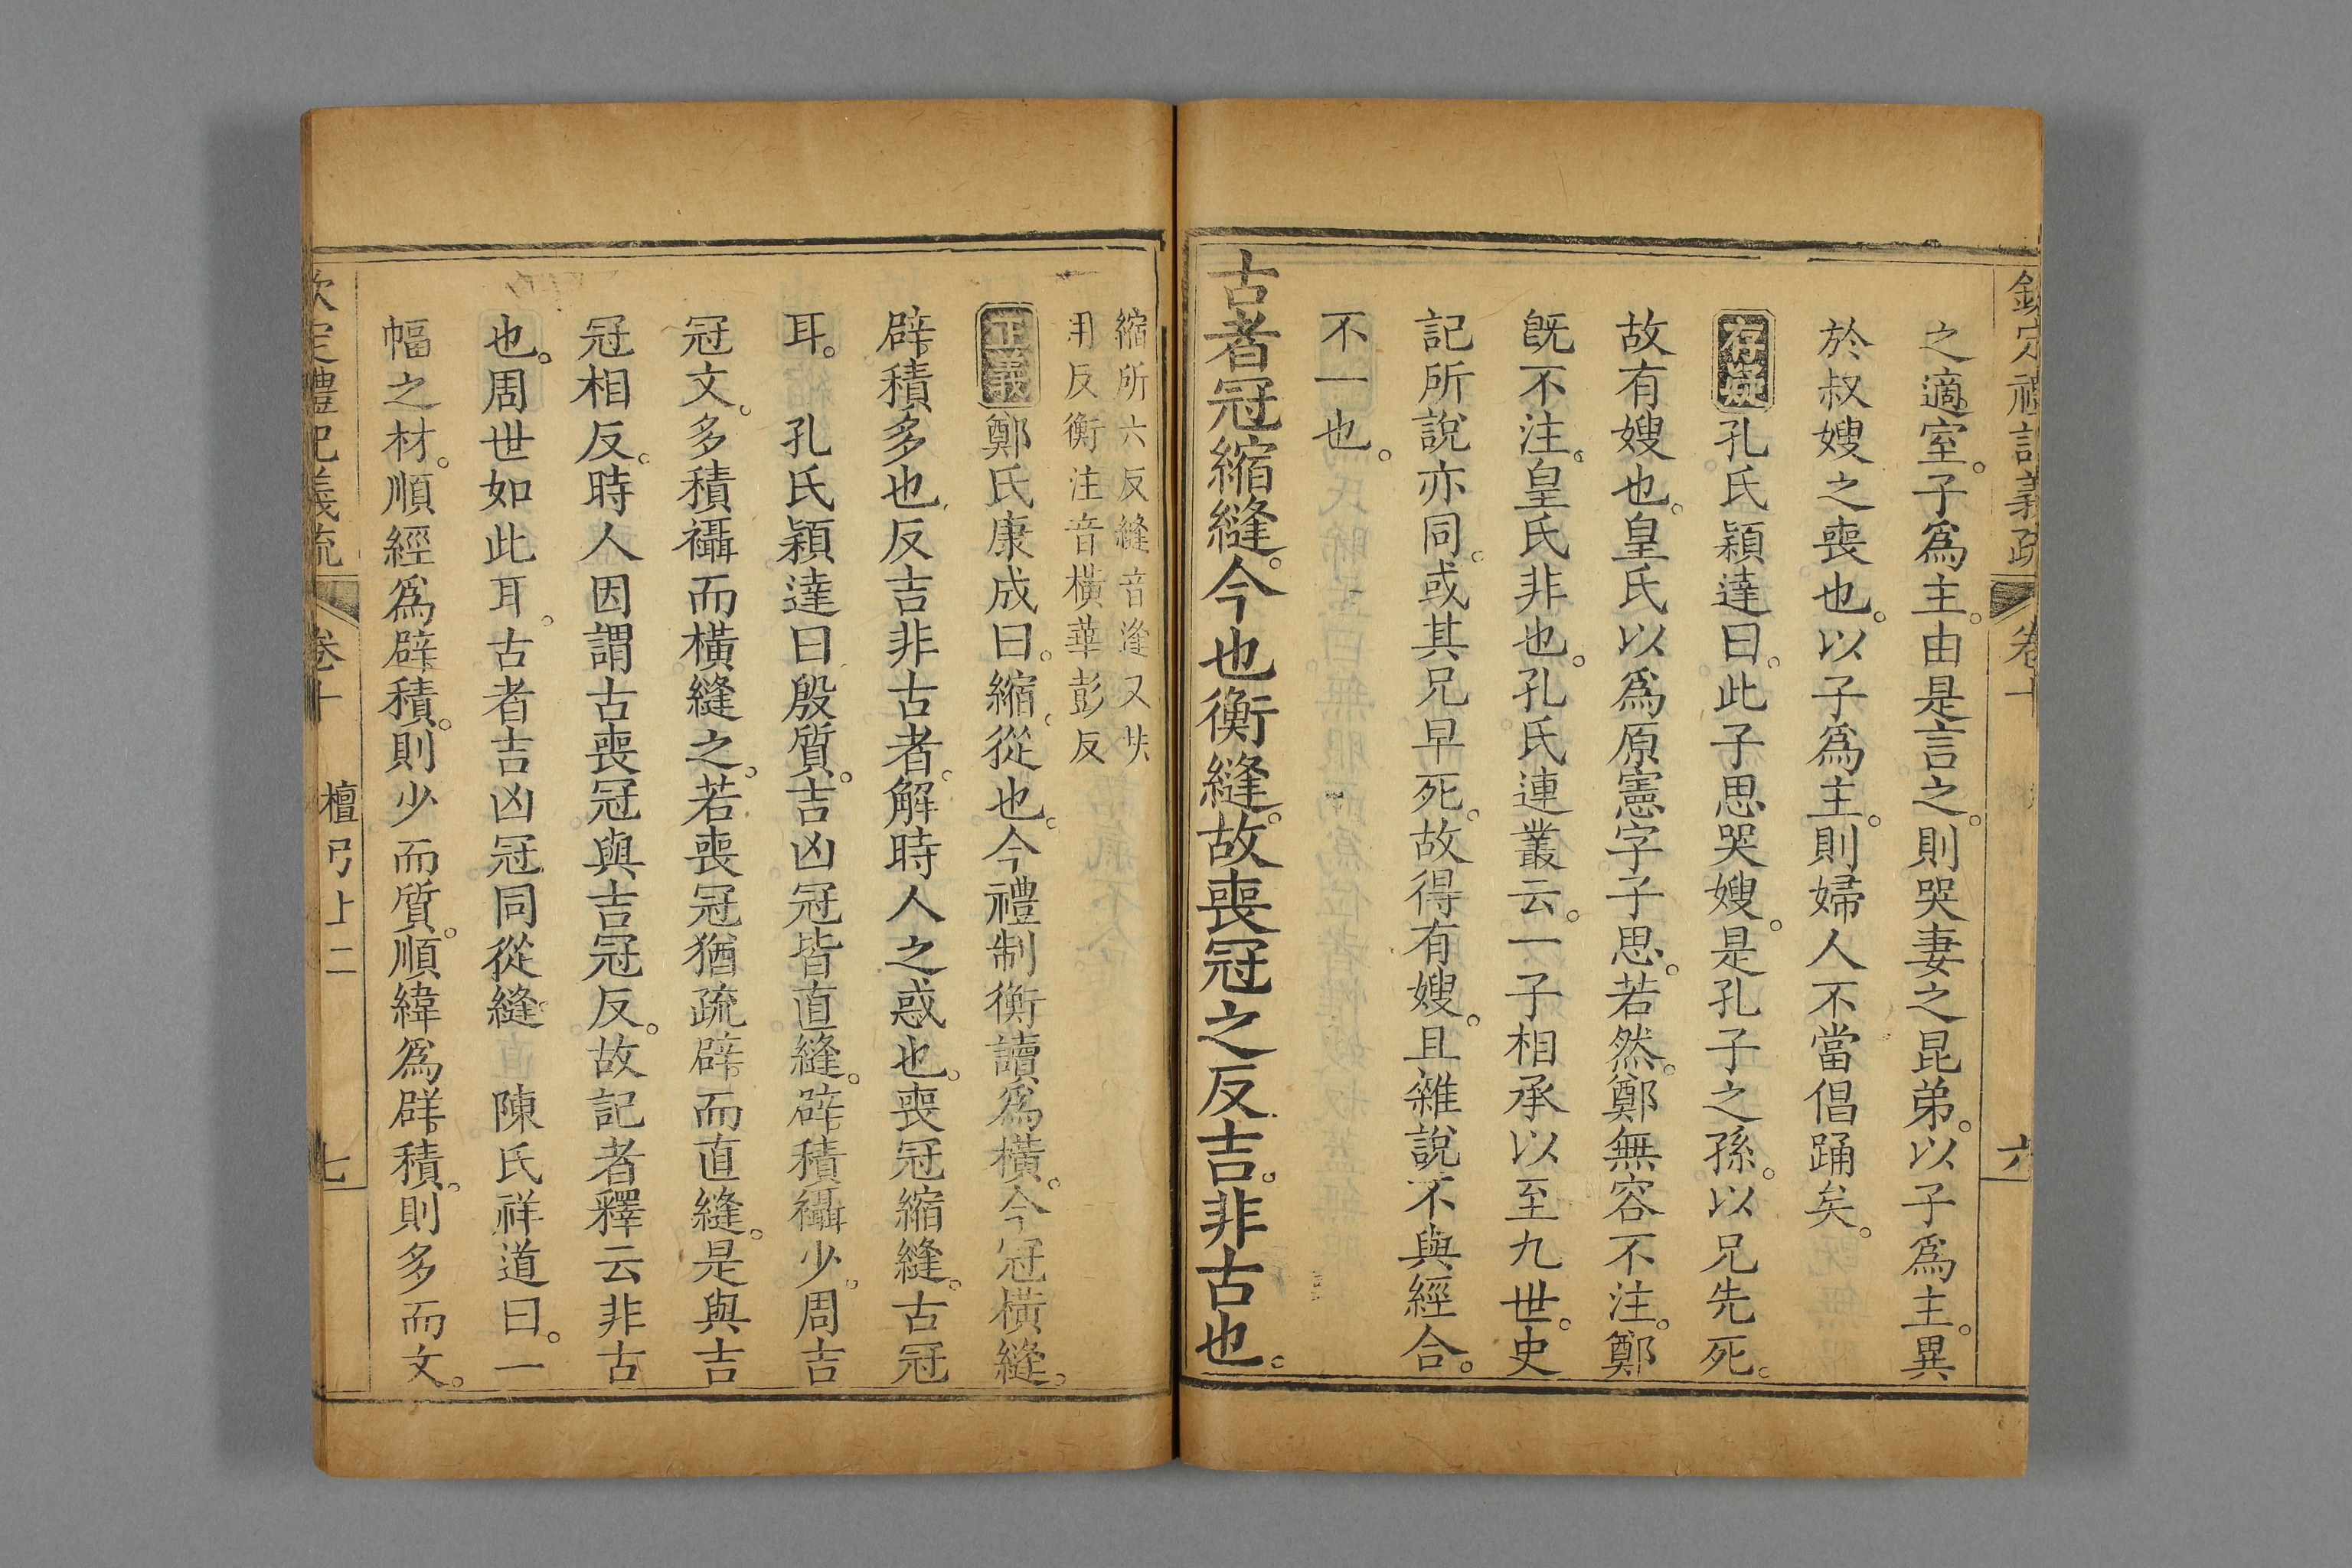 欽定禮記義疏 卷十 六
之適室。子為主。由是言之。則哭妻之昆弟。以子為主。異
於叔嫂之喪也。以子為主。則婦人不當倡踊矣。
存疑孔氏穎達曰。此子思哭嫂。是孔子之孫。以兄先死。
故有嫂也。皇氏以為原憲字子思。若然。鄭無容不注。鄭
旣不注。皇氏非也。孔氏連叢云。一子相承以至九世。史
記所說亦同。或其兄早死。故得有嫂。且雜說不與經合。
不一也。
古者冠縮縫。今也衡縫。故喪冠之反吉。非古也。
縮所六反縫音逢又扶
用反衡注音橫華彭反
正義鄭氏康成曰。縮。從也。今禮制衡讀為橫。今冠橫縫。
辟積多也。反吉非古者。解時人之惑也。喪冠縮縫。古冠
耳。 孔氏穎達曰。殷質。吉凶冠皆直縫。辟積襵少。周吉
冠文。多積襵而橫縫之。若喪冠猶疏辟而直縫。是與吉
冠相反。時人因謂古喪冠與吉冠反。故記者釋云非古
也。周世如此耳。古者吉凶冠同從縫。 陳氏祥道曰。一
幅之材。順經為辟積。則少而質。順緯為辟積。則多而文。
欽定禮記義疏 卷十 檀弓上二 七